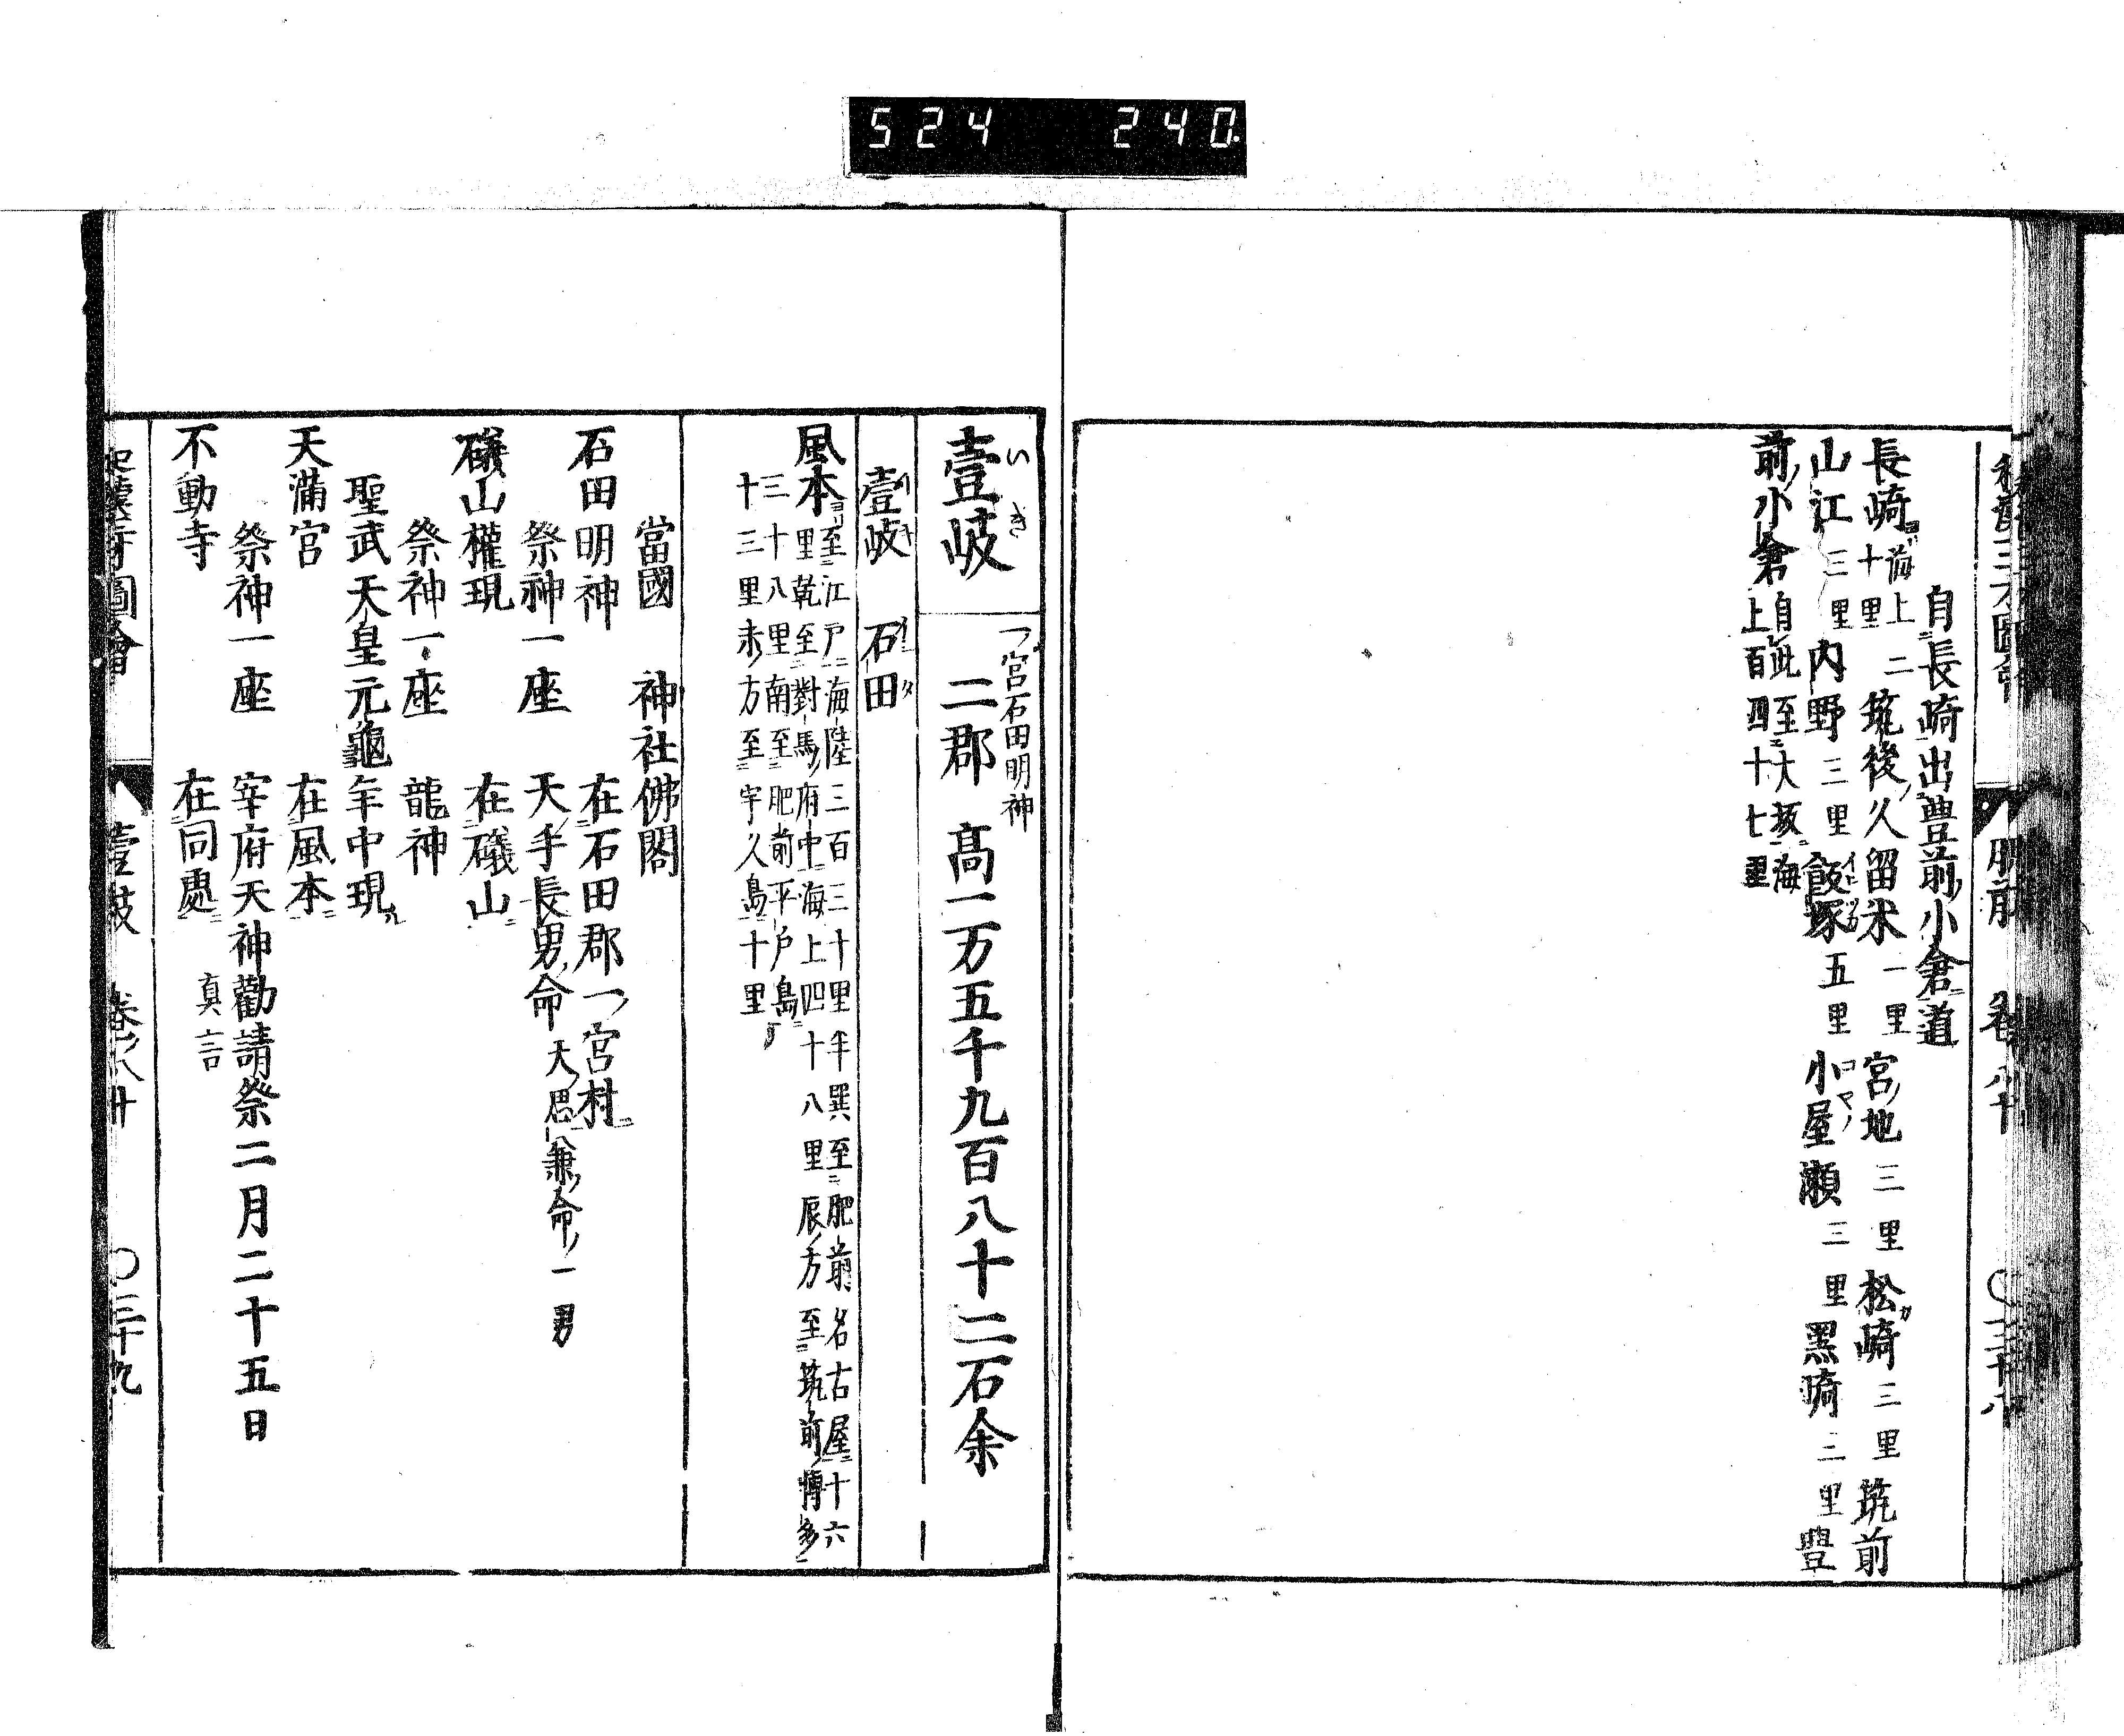 524 240
自長崎出豊前小倉道
長崎ヨリ海上二十里 筑後ノ久留米一里 宮ノ地三里 松崎三里 筑前
山江三里 内野三里 飯塚五里 小屋瀬三里 黒崎三里 豊
前ノ小倉自此至大坂海上百四十七里
肥前
壹岐 一ノ宮石田明神 二郡 高一万五千九百八十二石余
いき
壹岐 石田
風本ヨリ至江戸海陸三百三十里半巽至肥前名古屋十六
里乾至對馬ノ府中海上四十八里辰ノ方至筑前ノ博多
三十八里南至肥前平戸島
十三里未ノ方至宇久島十里
當國 神社佛閣
石田明神 在石田郡一ノ宮村
祭神一座 天ノ手長男ノ命 天ノ思兼ノ命ノ一男
礒山權現 在礒山
祭神一座 龍神
聖武天皇元龜年中現ル
天滿宮 在風本
祭神一座 宰府天神勸請祭二月二十五日
不動寺 在同處 真言
壹岐 卷ノ八十 〇三十九